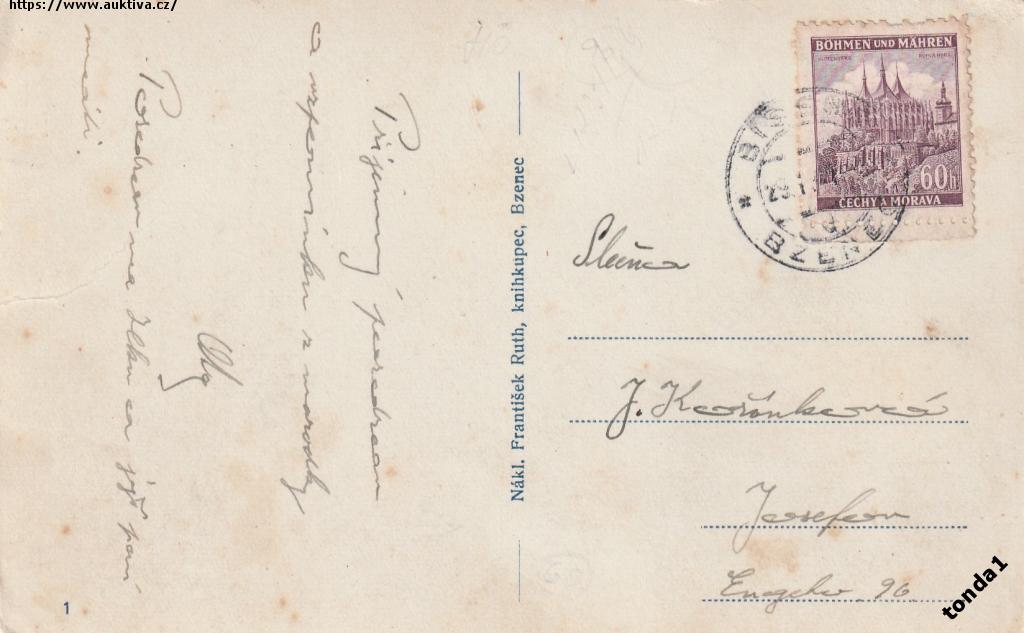 https://www.auktiva.cz/
BÖHMEN UND MÄHREN
60h
ČECHY A MORAVA
BZENEC
Příjemný pozdrav
a vzpomínku z
Olg
Pozdrav na a její paní
Nákl. František Ruth, knihkupec, Bzenec
Slečna
J. Kořínková
Josefov
96
1
tonda1